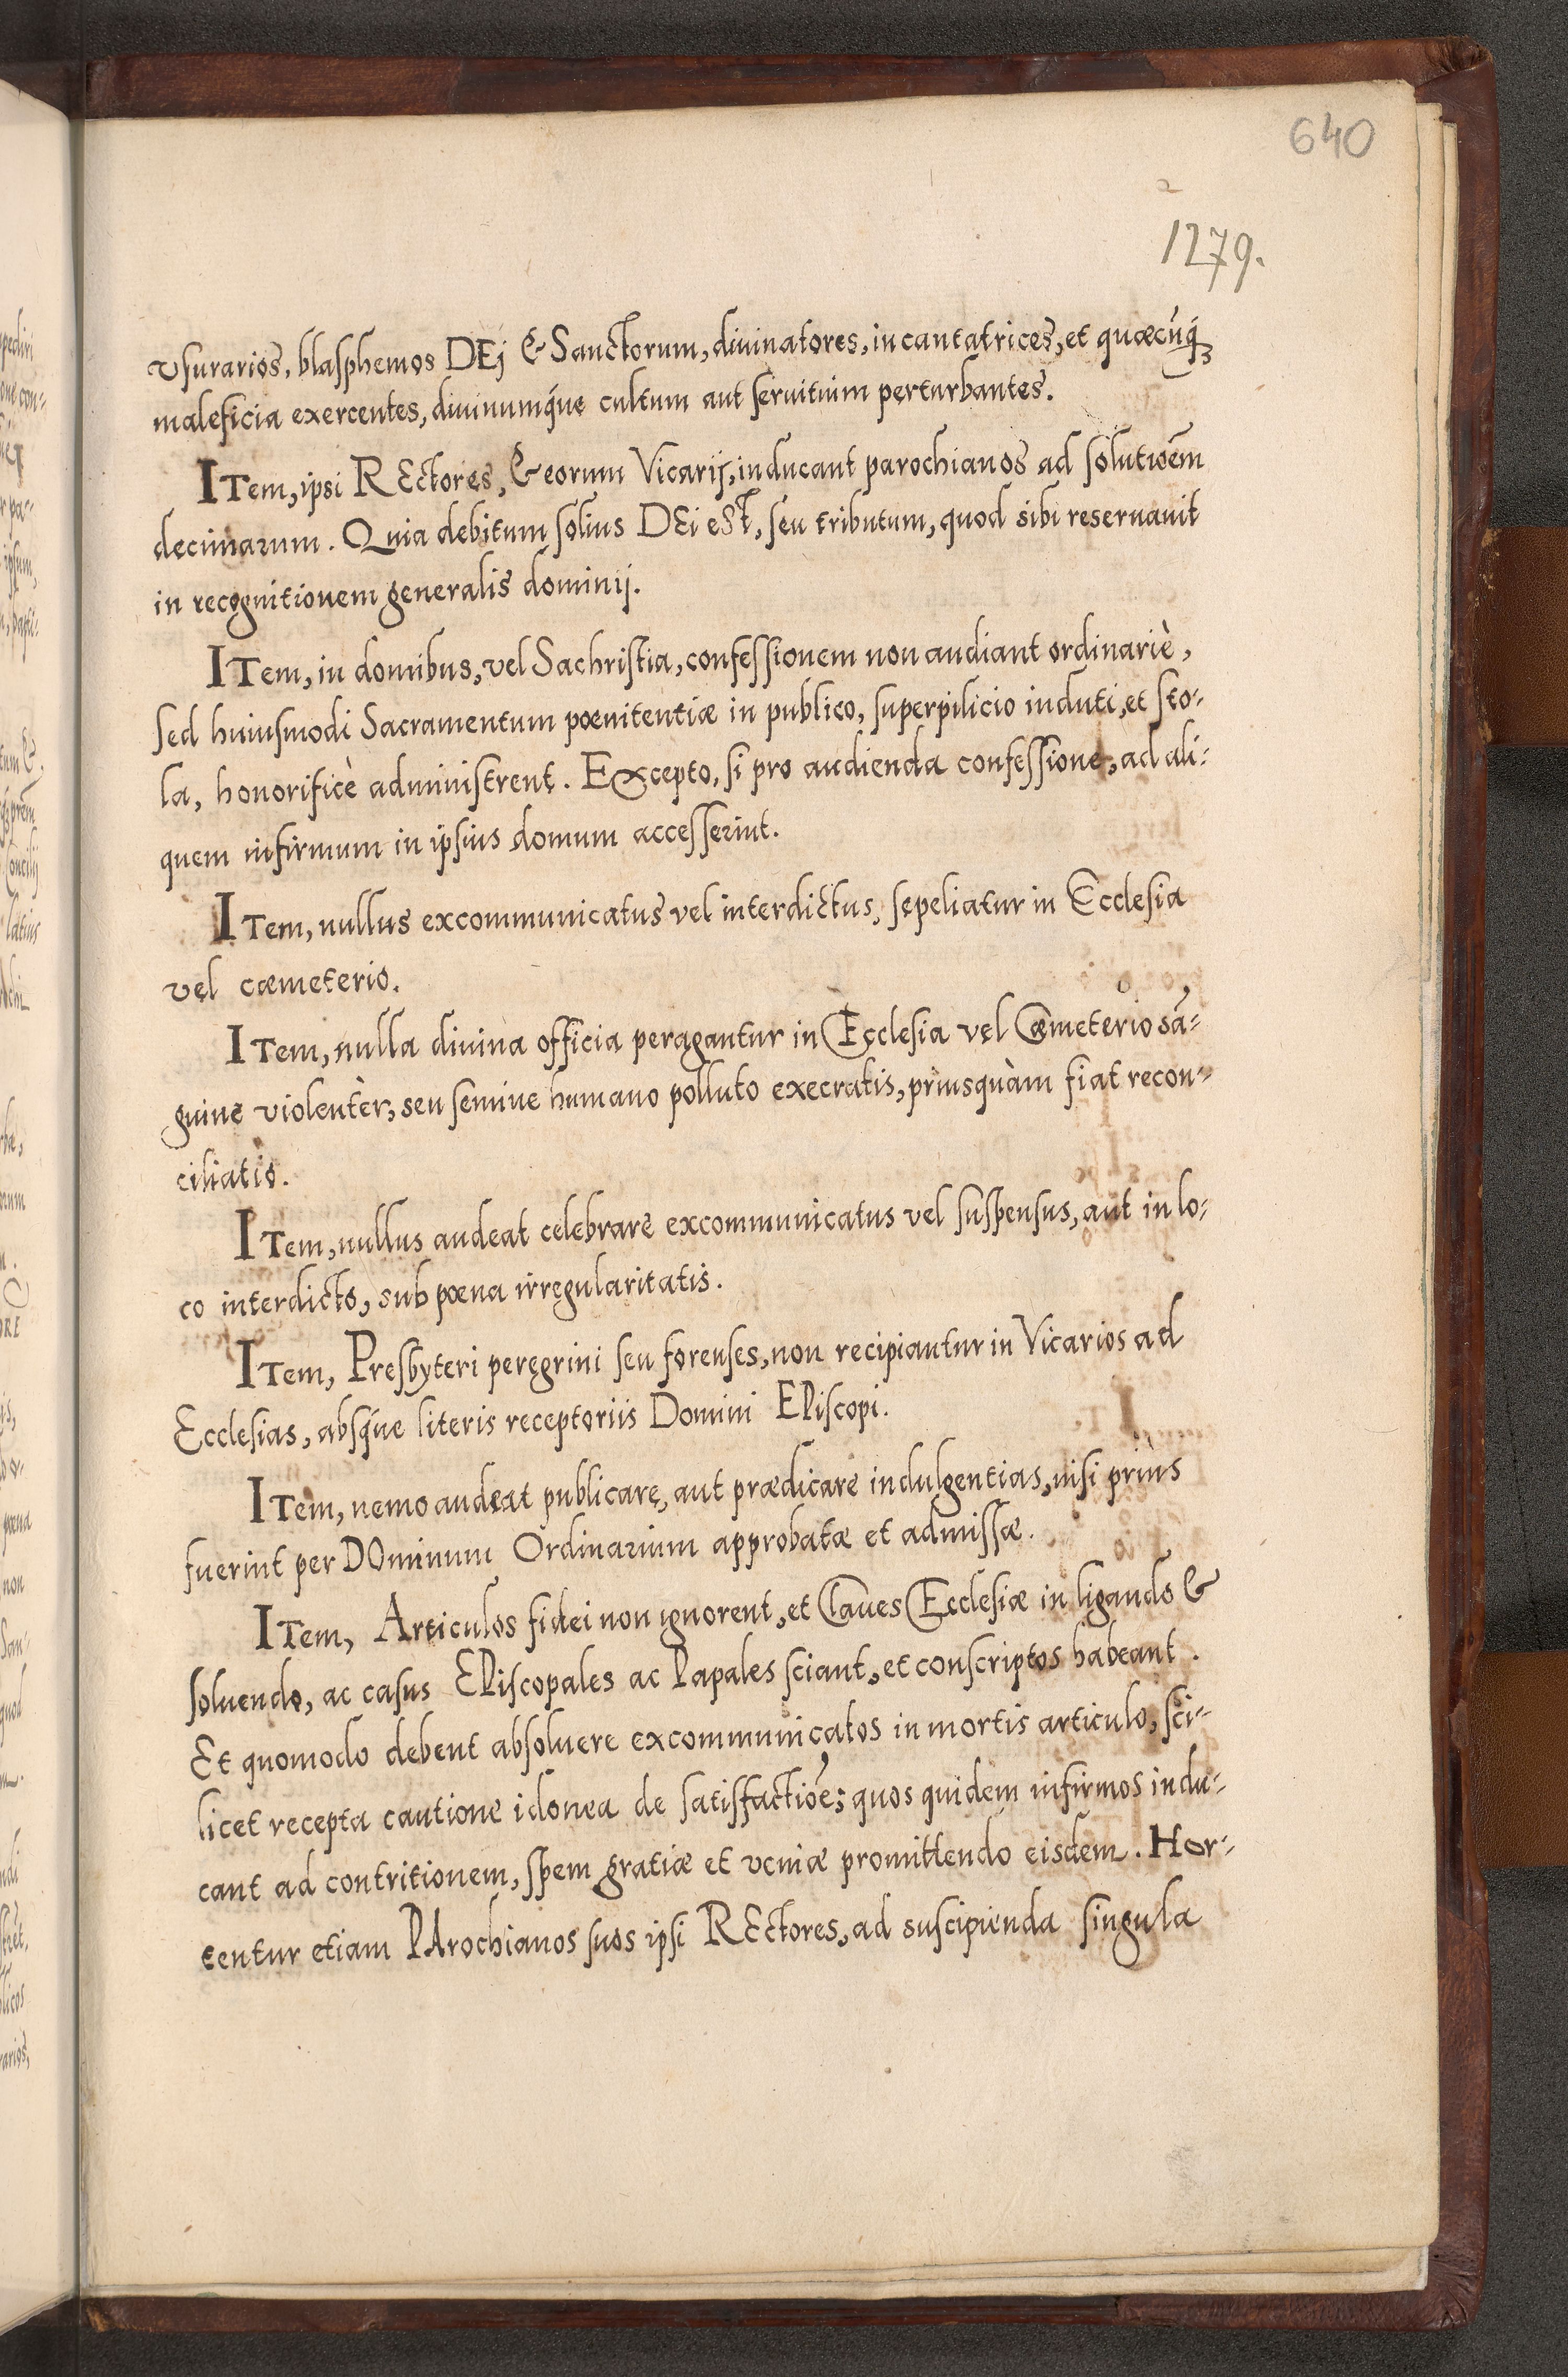 640
1279.
Vsurarios, blasphemos DEj & Sanctorum, diuinatores, incantatrices, et quæcũq́ꝫ
maleficia exercentes, diuinumq́ue cultum aut seruitium perturbantes.
ITem, ipsi REctores, & eorum Vicarij, inducant parochianos ad solutioẽm
decimarum. Quia debitum solius DEi esT, seu tributum, quod sibi reseruauit
in recognitionem generalis dominij.
ITem, in domibus, vel Sachristia, confessionem non audiant ordinariè,
sed huiusmodi Sacramentum pœnitentiæ in publico, superpilicio induti, et sto-
la, honorificè administrent. Excepto, si pro audienda confessione, ad ali-
quem infirmum in ipsius domum accesserint.
ITem, nullus excommunicatus vel interdictus, sepeliatur in Ecclesia
vel cæmeterio.
ITem, nulla diuina officia peragantur in Ecclesia vel Cœmeterio sã-
guine violentèr, seu semine humano polluto execratis, priusquàm fiat recon-
ciliatio.
ITem, nullus audeat celebrare excommunicatus vel suspensus, aut in lo-
co interdicto, sub pœna irregularitatis.
ITem, Presbyteri peregrini seu forenses, non recipiantur in Vicarios ad
Ecclesias, absq́ue literis receptoriis Domini EPiscopi.
ITem, nemo audeat publicare, aut prædicare indulgentias, nisi priùs
fuerint per DOminum Ordinarium approbatæ et admissæ.
ITem, Articulos fidei non ignorent, et Claues Ecclesiæ in ligando &
soluendo, ac casus EPiscopales ac Papales sciant, et conscriptos habeant.
Et quomodo debent absoluere excommunicatos in mortis articulo, sci-
licet recepta cautione idonea de satisfactiõe; quos quidem infirmos indu-
cant ad contritionem, spem gratiæ et veniæ promittendo eisdem. Hor-
tentur etiam PArochianos suos ipsi REctores, ad suscipienda singula